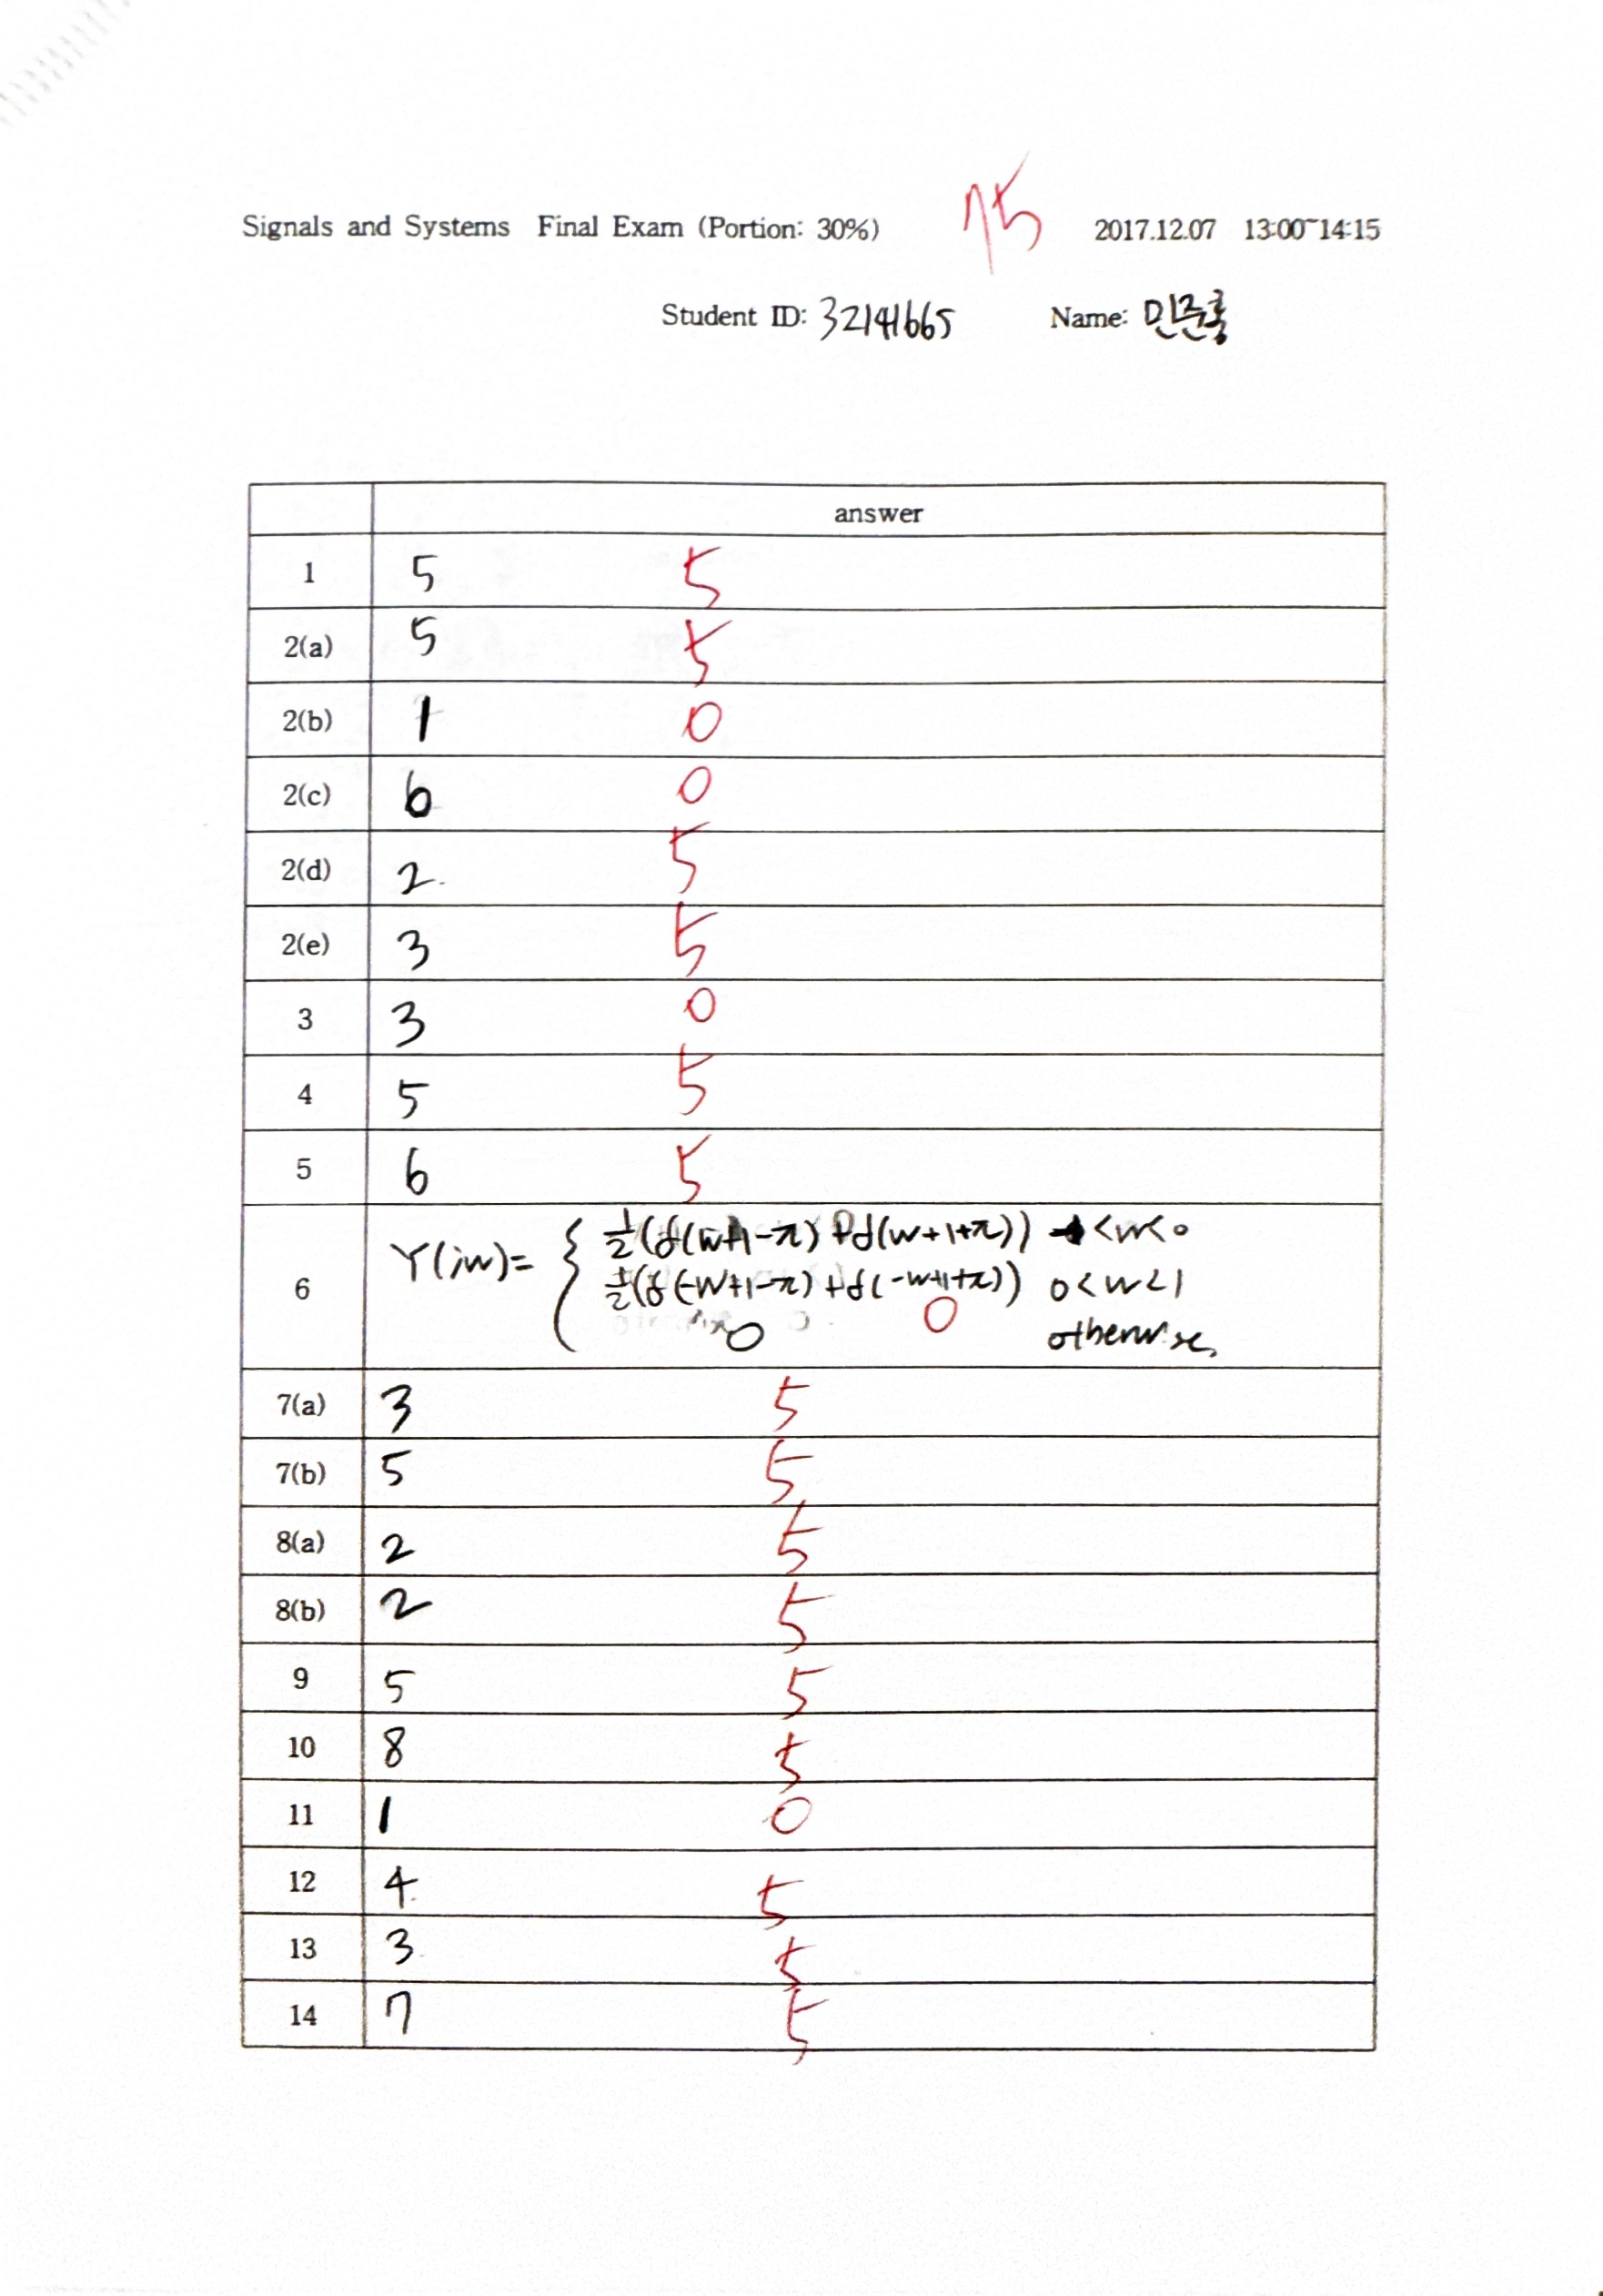 Signals and Systems Final Exam (Portion: 30%) 75 2017.12.07 13:00~14:15
Student ID: 32141665 Name: 민준홍
answer
1 5 5
2(a) 5 5
2(b) 1 0
2(c) 6 0
2(d) 2 5
2(e) 3 5
3 3 0
4 5 5
5 6 5
6 Y(jw)= { 1/2(δ(w+1-π)+δ(w+1+π)) -1<w<0
1/2(δ(-w+1-π)+δ(-w+1+π)) 0<w<1
0 0 otherwise.
7(a) 3 5
7(b) 5 5
8(a) 2 5
8(b) 2 5
9 5 5
10 8 5
11 1 0
12 4 5
13 3 5
14 7 5